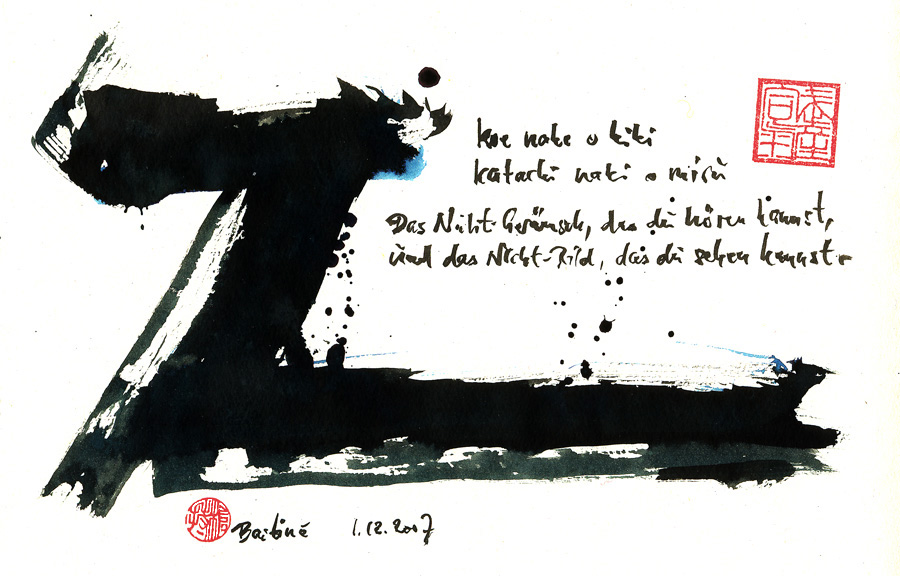 Z
koe naki o kiki
katachi naki o miru
Das Nicht-Geräusch, das du hören kannst,
und das Nicht-Bild, das du sehen kannst.
1.12.2007